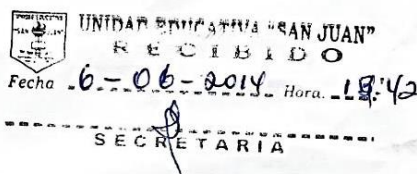 UNIDAD EDUCATIVA "SAN JUAN"
"SAN JUAN"
RECIBIDO
Fecha 6-06-2014 Hora. :42
SECRETARIA